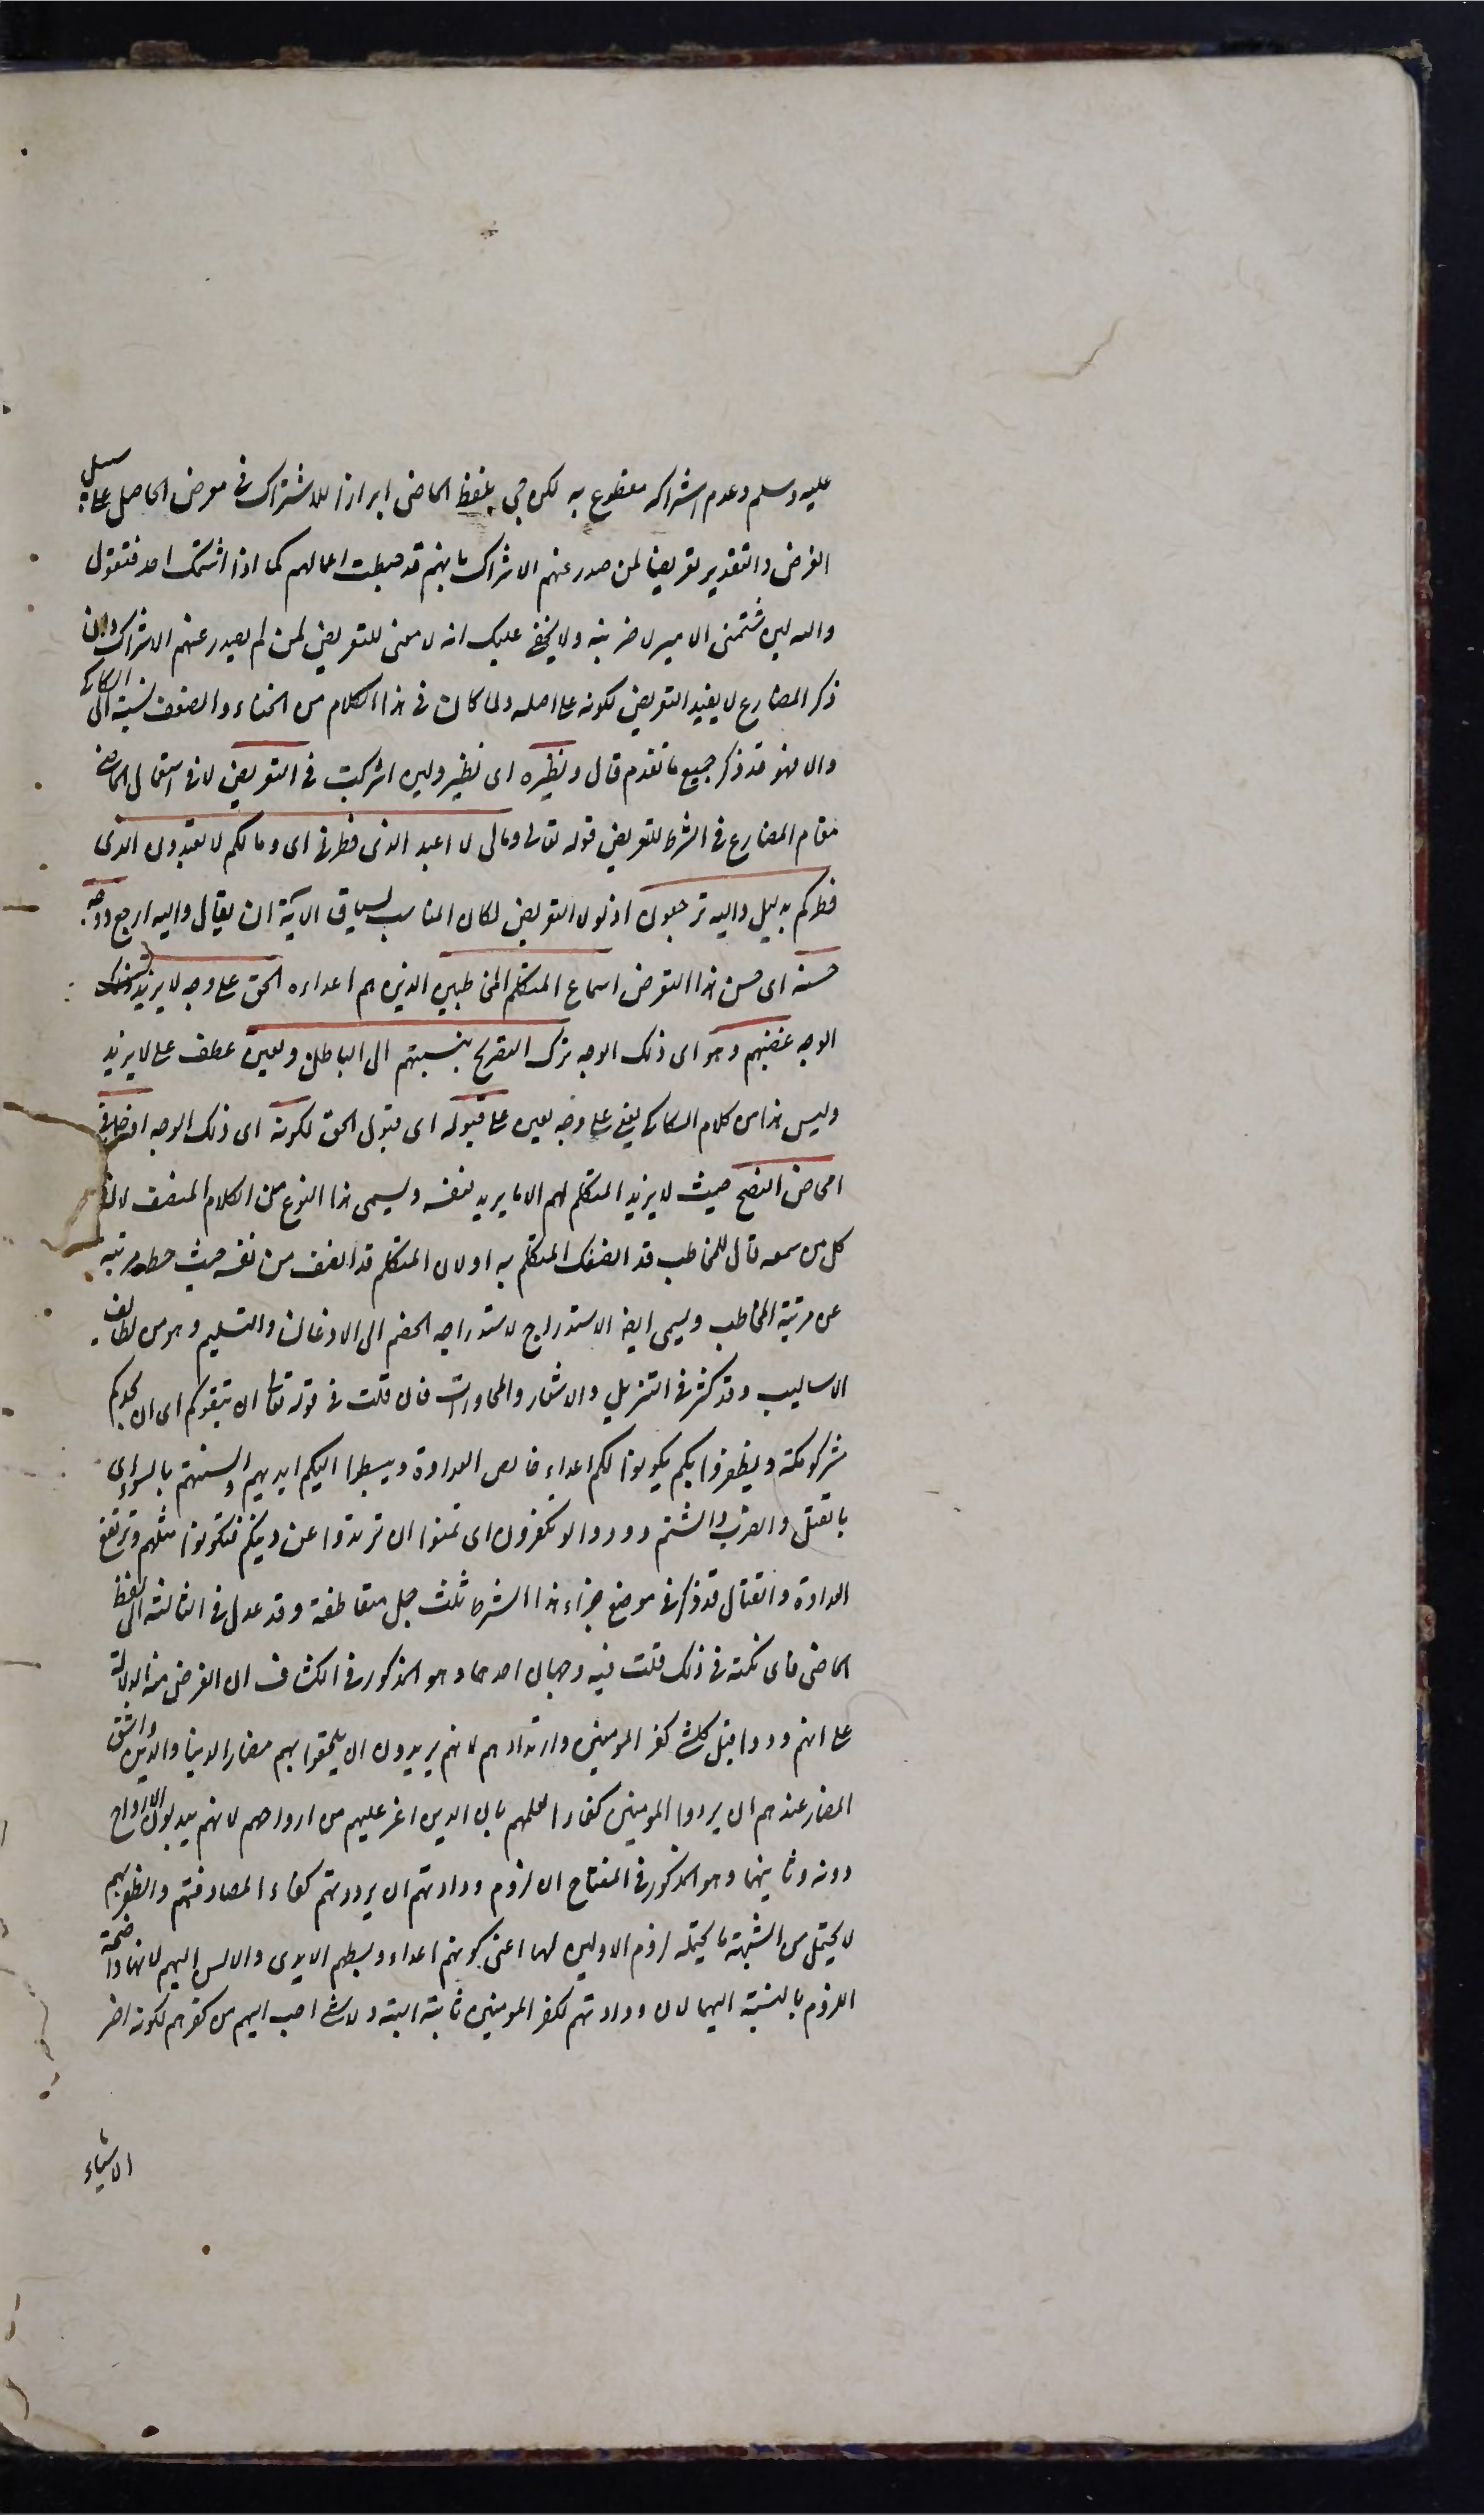 عليه وسلم وعدم اشراكه مقطوع به لكن جئ بلفظ الماضى ابرازا للاشتراك فى معرض الحاصل على سبيل
الفرض والتقدير تعريضا لمن صدر عنهم الاشراك بانهم قد حبطت اعمالهم كما اذا شتمك احد فتقول
والله لئن شتمنى الامير لاضربنه ولا يخفى عليك انه لا معنى للتعريض لمن لم يصدر عنهم الاشراك وان
ذكر المضارع لا يفيد التعريض لكونه على اصله ولما كان فى هذا الكلام من الخفاء والضعف نسبته الى السكاكى
والا فهو قد ذكر جميع ما تقدم قال ونظيره اى نظير ولئن اشركت فى التعريض لا فى استعمال الماضى
مقام المضارع فى الشرط للتعريض قوله تعالى ومالى لا اعبد الذى فطرنى اى وما لكم لا تعبدون الذى
فطركم بدليل واليه ترجعون اذ لولا التعريض لكان المناسب لسياق الآية ان يقال واليه ارجع ووجه
حسنه اى حسن هذا التعرض اسماع المتكلم المخاطبين الذين هم اعداءه الحق على وجه لا يزيد ذلك
الوجه غضبهم وهو اى ذلك الوجه ترك التصريح بنسبتهم الى الباطل ويعين عطف على لا يزيد
وليس هذا من كلام السكاكى يعنى على وجه يعين على قبوله اى قبول الحق لكونه اى ذلك الوجه ادخل فى
امحاض النصح حيث لا يزيد المتكلم لهم الا ما يريد لنفسه ويسمى هذا النوع من الكلام المنصف لان
كل من سمعه قال للمخاطب قد انصفك المتكلم به او لان المتكلم قد انصف من نفسه حيث حط مرتبته
عن مرتبة المخاطب ويسمى ايضا الاستدراج لاستدراجه الخصم الى الاذعان والتسليم وهو من لطائف
الاساليب وقد كثر فى التنزيل والاشعار والمحاورات فان قلت فى قوله تعالى ان يثقفوكم اى ان يجدوكم
مشركو مكة ويظفروا بكم يكونوا لكم اعداء خالص العداوة ويبسطوا اليكم ايديهم والسنتهم بالسوء اى
بالقتل والضرب والشتم وودوا لو تكفرون اى تمنوا ان ترتدوا عن دينكم فتكونوا مثلهم وترتفع
العداوة والقتال قد ذكر فى موضع جزاء هذا الشرط ثلث جمل متعاطفة وقد عدل فى الثالثة الى لفظ
الماضى فاى نكتة فى ذلك قلت فيه وجهان احدهما وهو المذكور فى الكشاف ان الغرض منه الدلالة
على انهم ودوا قبل كل شئ كفر المومنين وارتدادهم لانهم يريدون ان يلحقوا بهم مضار الدنيا والدين واشق
المضار عندهم ان يردوا المومنين كفارا لعلمهم بان الدين اعز عليهم من ارواحهم لانهم يبذلون الارواح
دونه وثانيهما وهو المذكور فى المفتاح ان لزوم ودادتهم ان يردوهم كفارا لمصادفتهم والظفر بهم
لا يحتمل من الشبهة ما يحتمله لزوم الاولين لهما اعنى كونهم اعداء وبسطهم الايدى والالسن اليهم لانها واضحة
اللزوم بالنسبة اليهما لان ودادتهم لكفر المومنين ثابتة البتة ولا شئ احب اليهم من كفرهم لكونه اضر
الاشياء